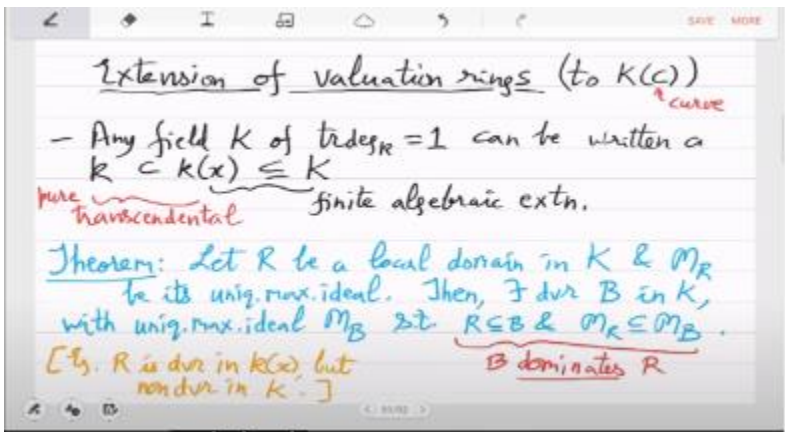 SAVE MORE
Extension of valuation rings (to K(C))
curve
- Any field K of trdeg_k = 1 can be written a
k ⊂ k(x) ⊆ K
pure transcendental
finite algebraic extn.
Theorem: Let R be a local domain in K & m_R
be its uniq. max. ideal. Then, ∃ dvr B in K,
with uniq. max. ideal m_B s.t. R ⊆ B & m_R ⊆ m_B.
B dominates R
[Eg. R is dvr in k(x), but
non dvr in K.]